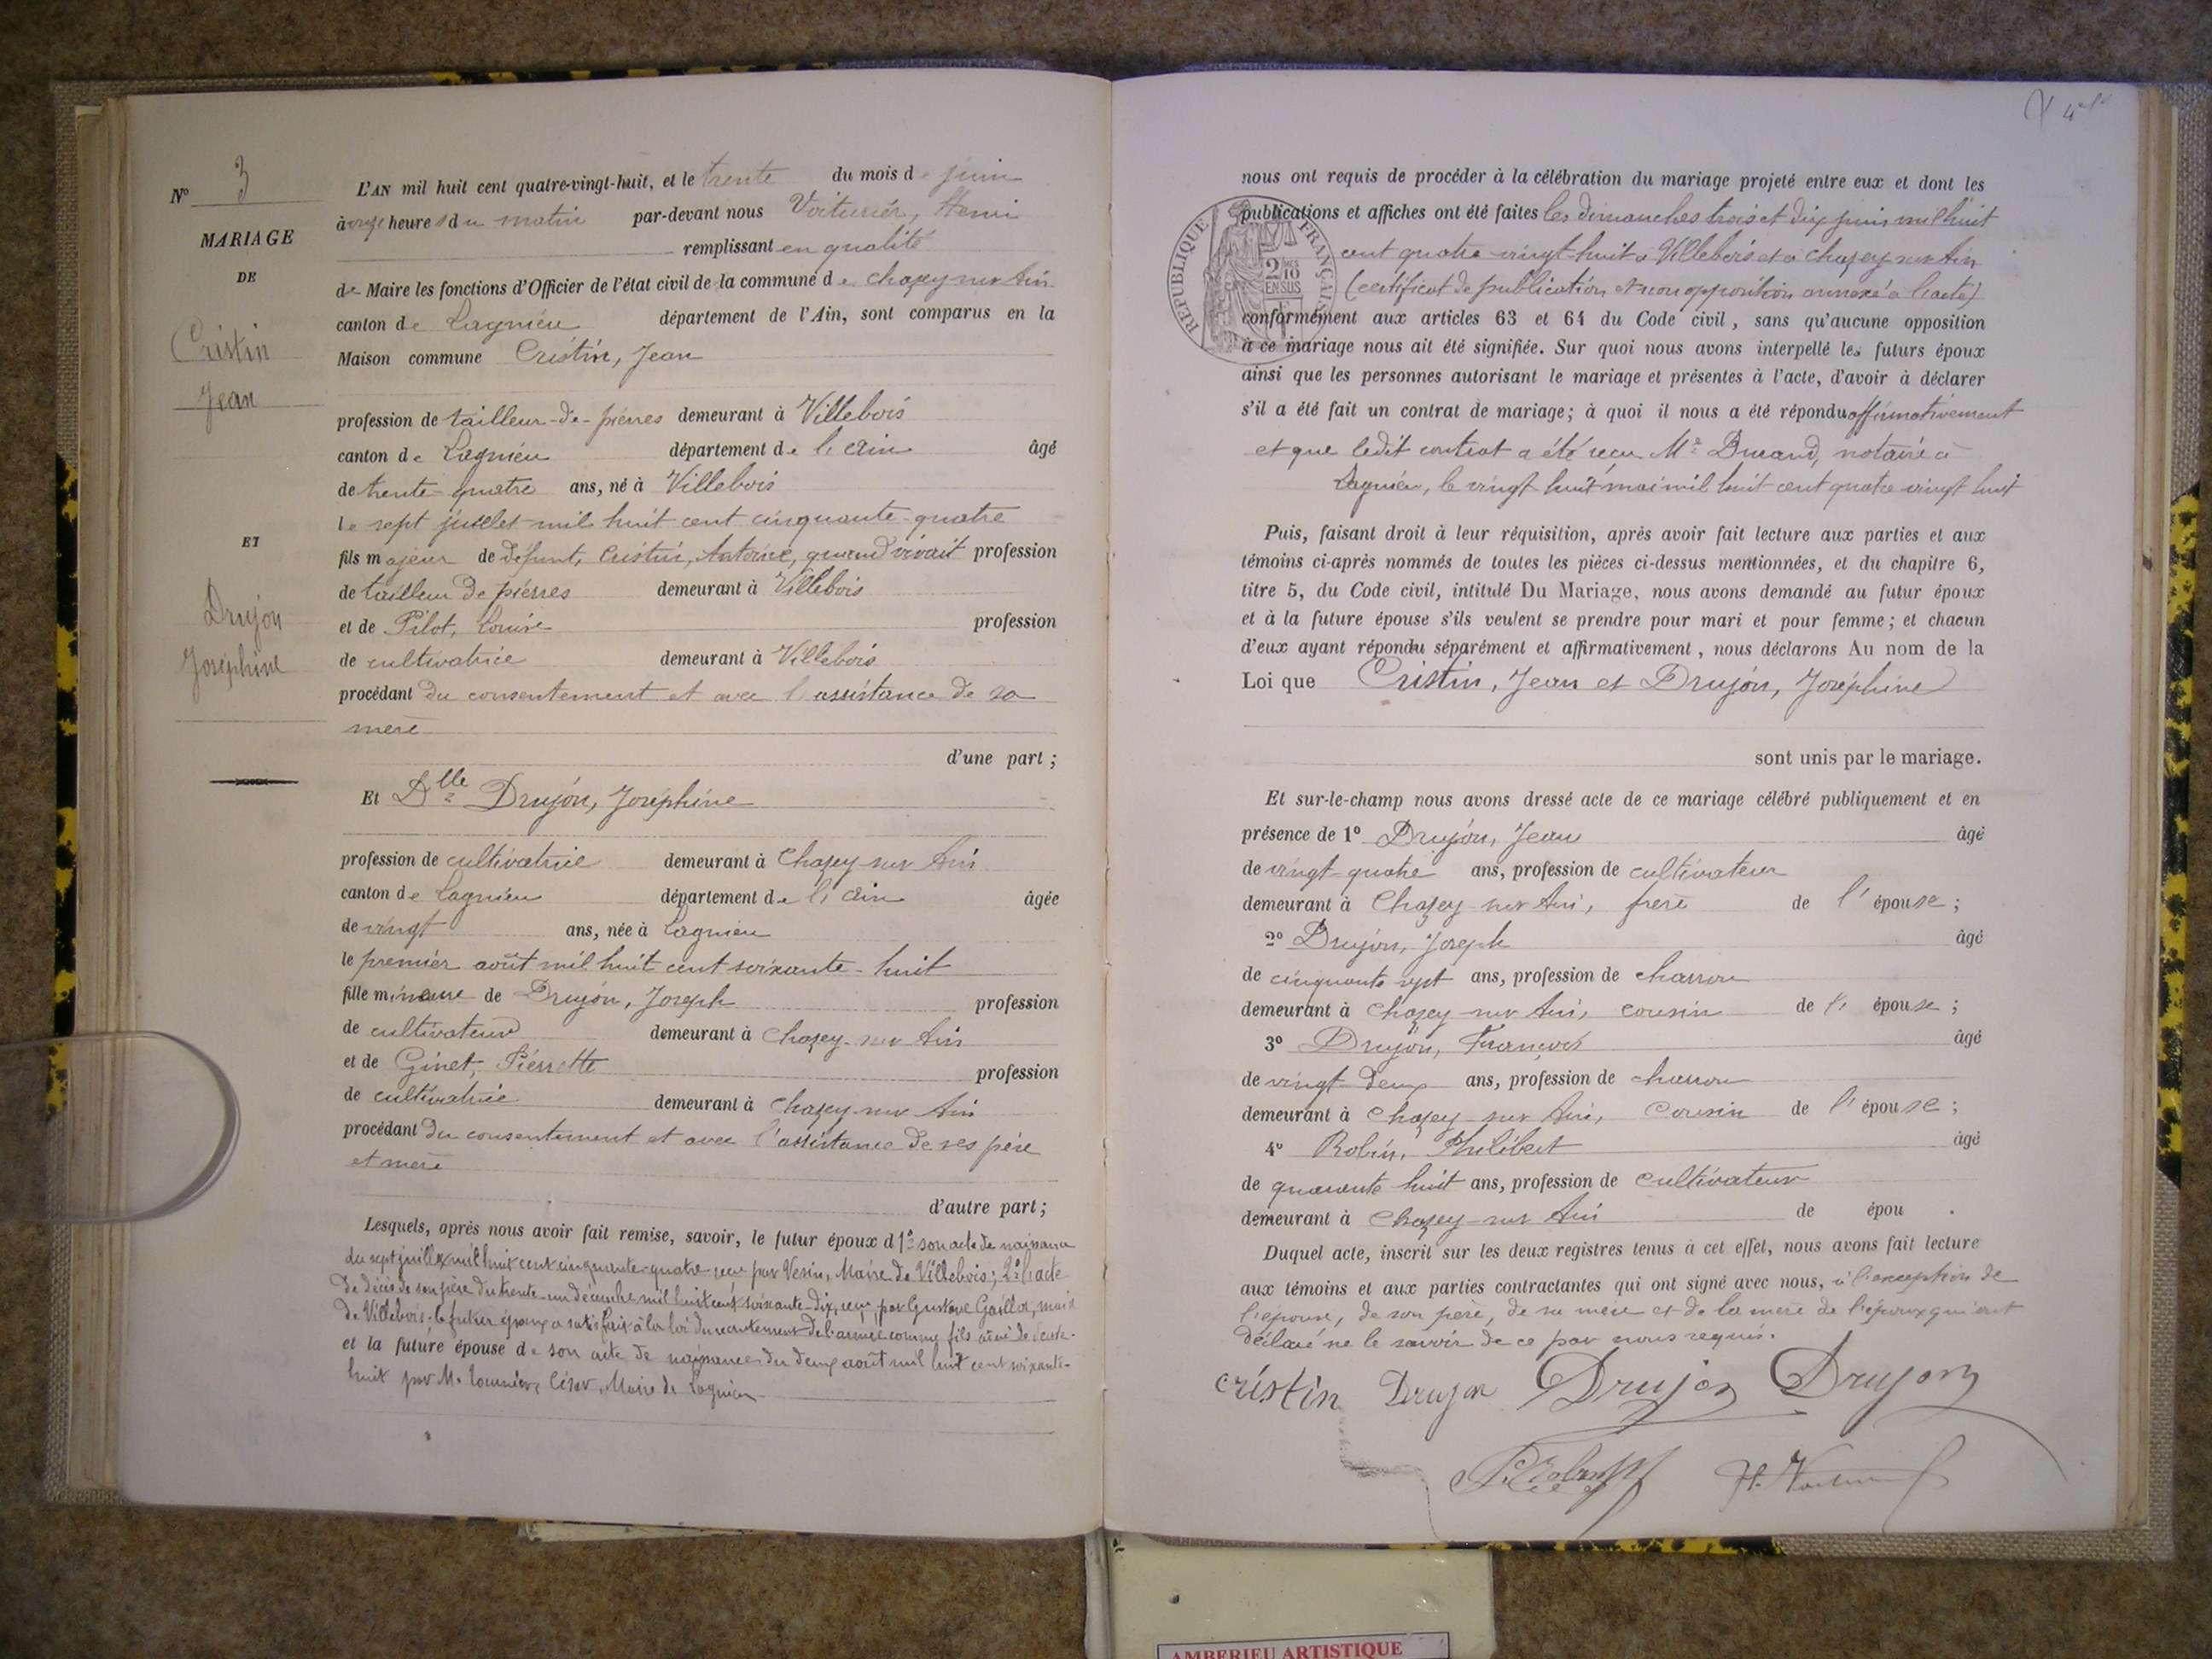 N° 3
MARIAGE
DE
Cristin
Jean
ET
Drujon
Joséphine
L'AN mil huit cent quatre-vingt-huit, et le trente du mois de juin
à onze heures du matin par-devant nous Voiturier, Henri
remplissant en qualité
de Maire les fonctions d'Officier de l'état civil de la commune de Chazey sur Ain
canton de Lagnieu département de l'Ain, sont comparus en la
Maison commune Cristin, Jean
profession de tailleur-de-pierres demeurant à Villebois
canton de Lagnieu département de l'Ain âgé
de trente-quatre ans, né à Villebois
le sept juillet mil huit cent cinquante-quatre
fils majeur de défunt, Cristin, Antoine, quand vivait profession
de tailleur de pierres demeurant à Villebois
et de Pilot, Louise profession
de cultivatrice demeurant à Villebois
procédant du consentement et avec l'assistance de sa
mère
d'une part ;
Et Dlle Drujon, Joséphine
profession de cultivatrice demeurant à Chazey sur Ain
canton de Lagnieu département de l'Ain âgée
de vingt ans, née à Lagnieu
le premier août mil huit cent soixante-huit
fille mineure de Drujon, Joseph profession
de cultivateur demeurant à Chazey-sur Ain
et de Ginet, Pierrette profession
de cultivatrice demeurant à Chazey-sur Ain
procédant du consentement et avec l'assistance de ses père
et mère
d'autre part ;
Lesquels, après nous avoir fait remise, savoir, le futur époux d 1° son acte de naissance
du sept juillet mil huit cent cinquante-quatre reçu par Vesin, Maire de Villebois ; 2° l'acte
de décès de son père du trente-un décembre mil huit cent soixante-dix, reçu par Gustave Gaillot, maire
de Villebois. le futur époux a satisfait à la loi du recrutement de l'armée comme fils aîné de
et la future épouse de son acte de naissance du deux août mil huit cent soixante-
huit par M. César, Maire de Lagnieu
4
nous ont requis de procéder à la célébration du mariage projeté entre eux et dont les
publications et affiches ont été faites les dimanches trois et dix juin mil huit
cent quatre-vingt-huit à Villebois et à Chazey sur Ain
(certificat de publication et non opposition annexé à l'acte)
REPUBLIQUE FRANÇAISE
2/10 EN SUS
conformément aux articles 63 et 64 du Code civil, sans qu'aucune opposition
à ce mariage nous ait été signifiée. Sur quoi nous avons interpellé les futurs époux
ainsi que les personnes autorisant le mariage et présentes à l'acte, d'avoir à déclarer
s'il a été fait un contrat de mariage; à quoi il nous a été répondu affirmativement
et que ledit contrat a été reçu Me Durand, notaire à
Lagnieu, le vingt huit mai mil huit cent quatre vingt huit
Puis, faisant droit à leur réquisition, après avoir fait lecture aux parties et aux
témoins ci-après nommés de toutes les pièces ci-dessus mentionnées, et du chapitre 6,
titre 5, du Code civil, intitulé Du Mariage, nous avons demandé au futur époux
et à la future épouse s'ils veulent se prendre pour mari et pour femme; et chacun
d'eux ayant répondu séparément et affirmativement, nous déclarons Au nom de la
Loi que Cristin, Jean et Drujon, Joséphine
sont unis par le mariage.
Et sur-le-champ nous avons dressé acte de ce mariage célébré publiquement et en
présence de 1° Drujon, Jean âgé
de vingt-quatre ans, profession de cultivateur
demeurant à Chazey sur Ain, frère de l'épouse ;
2° Drujon, Joseph âgé
de cinquante sept ans, profession de charron
demeurant à Chazey sur Ain, cousin de l'épouse ;
3° Drujon, François âgé
de vingt-deux ans, profession de charron
demeurant à Chazey sur Ain, Cousin de l'épouse ;
4° Robin, Philibert âgé
de quarante huit ans, profession de cultivateur
demeurant à Chazey-sur Ain de épou .
Duquel acte, inscrit sur les deux registres tenus à cet effet, nous avons fait lecture
aux témoins et aux parties contractantes qui ont signé avec nous, à l'exception de
l'épouse, de son père, de sa mère et de la mère de l'époux qui ont
déclaré ne le savoir de ce par nous requis.
Cristin Drujon Drujon Drujon
AMBERIEU ARTISTIQUE